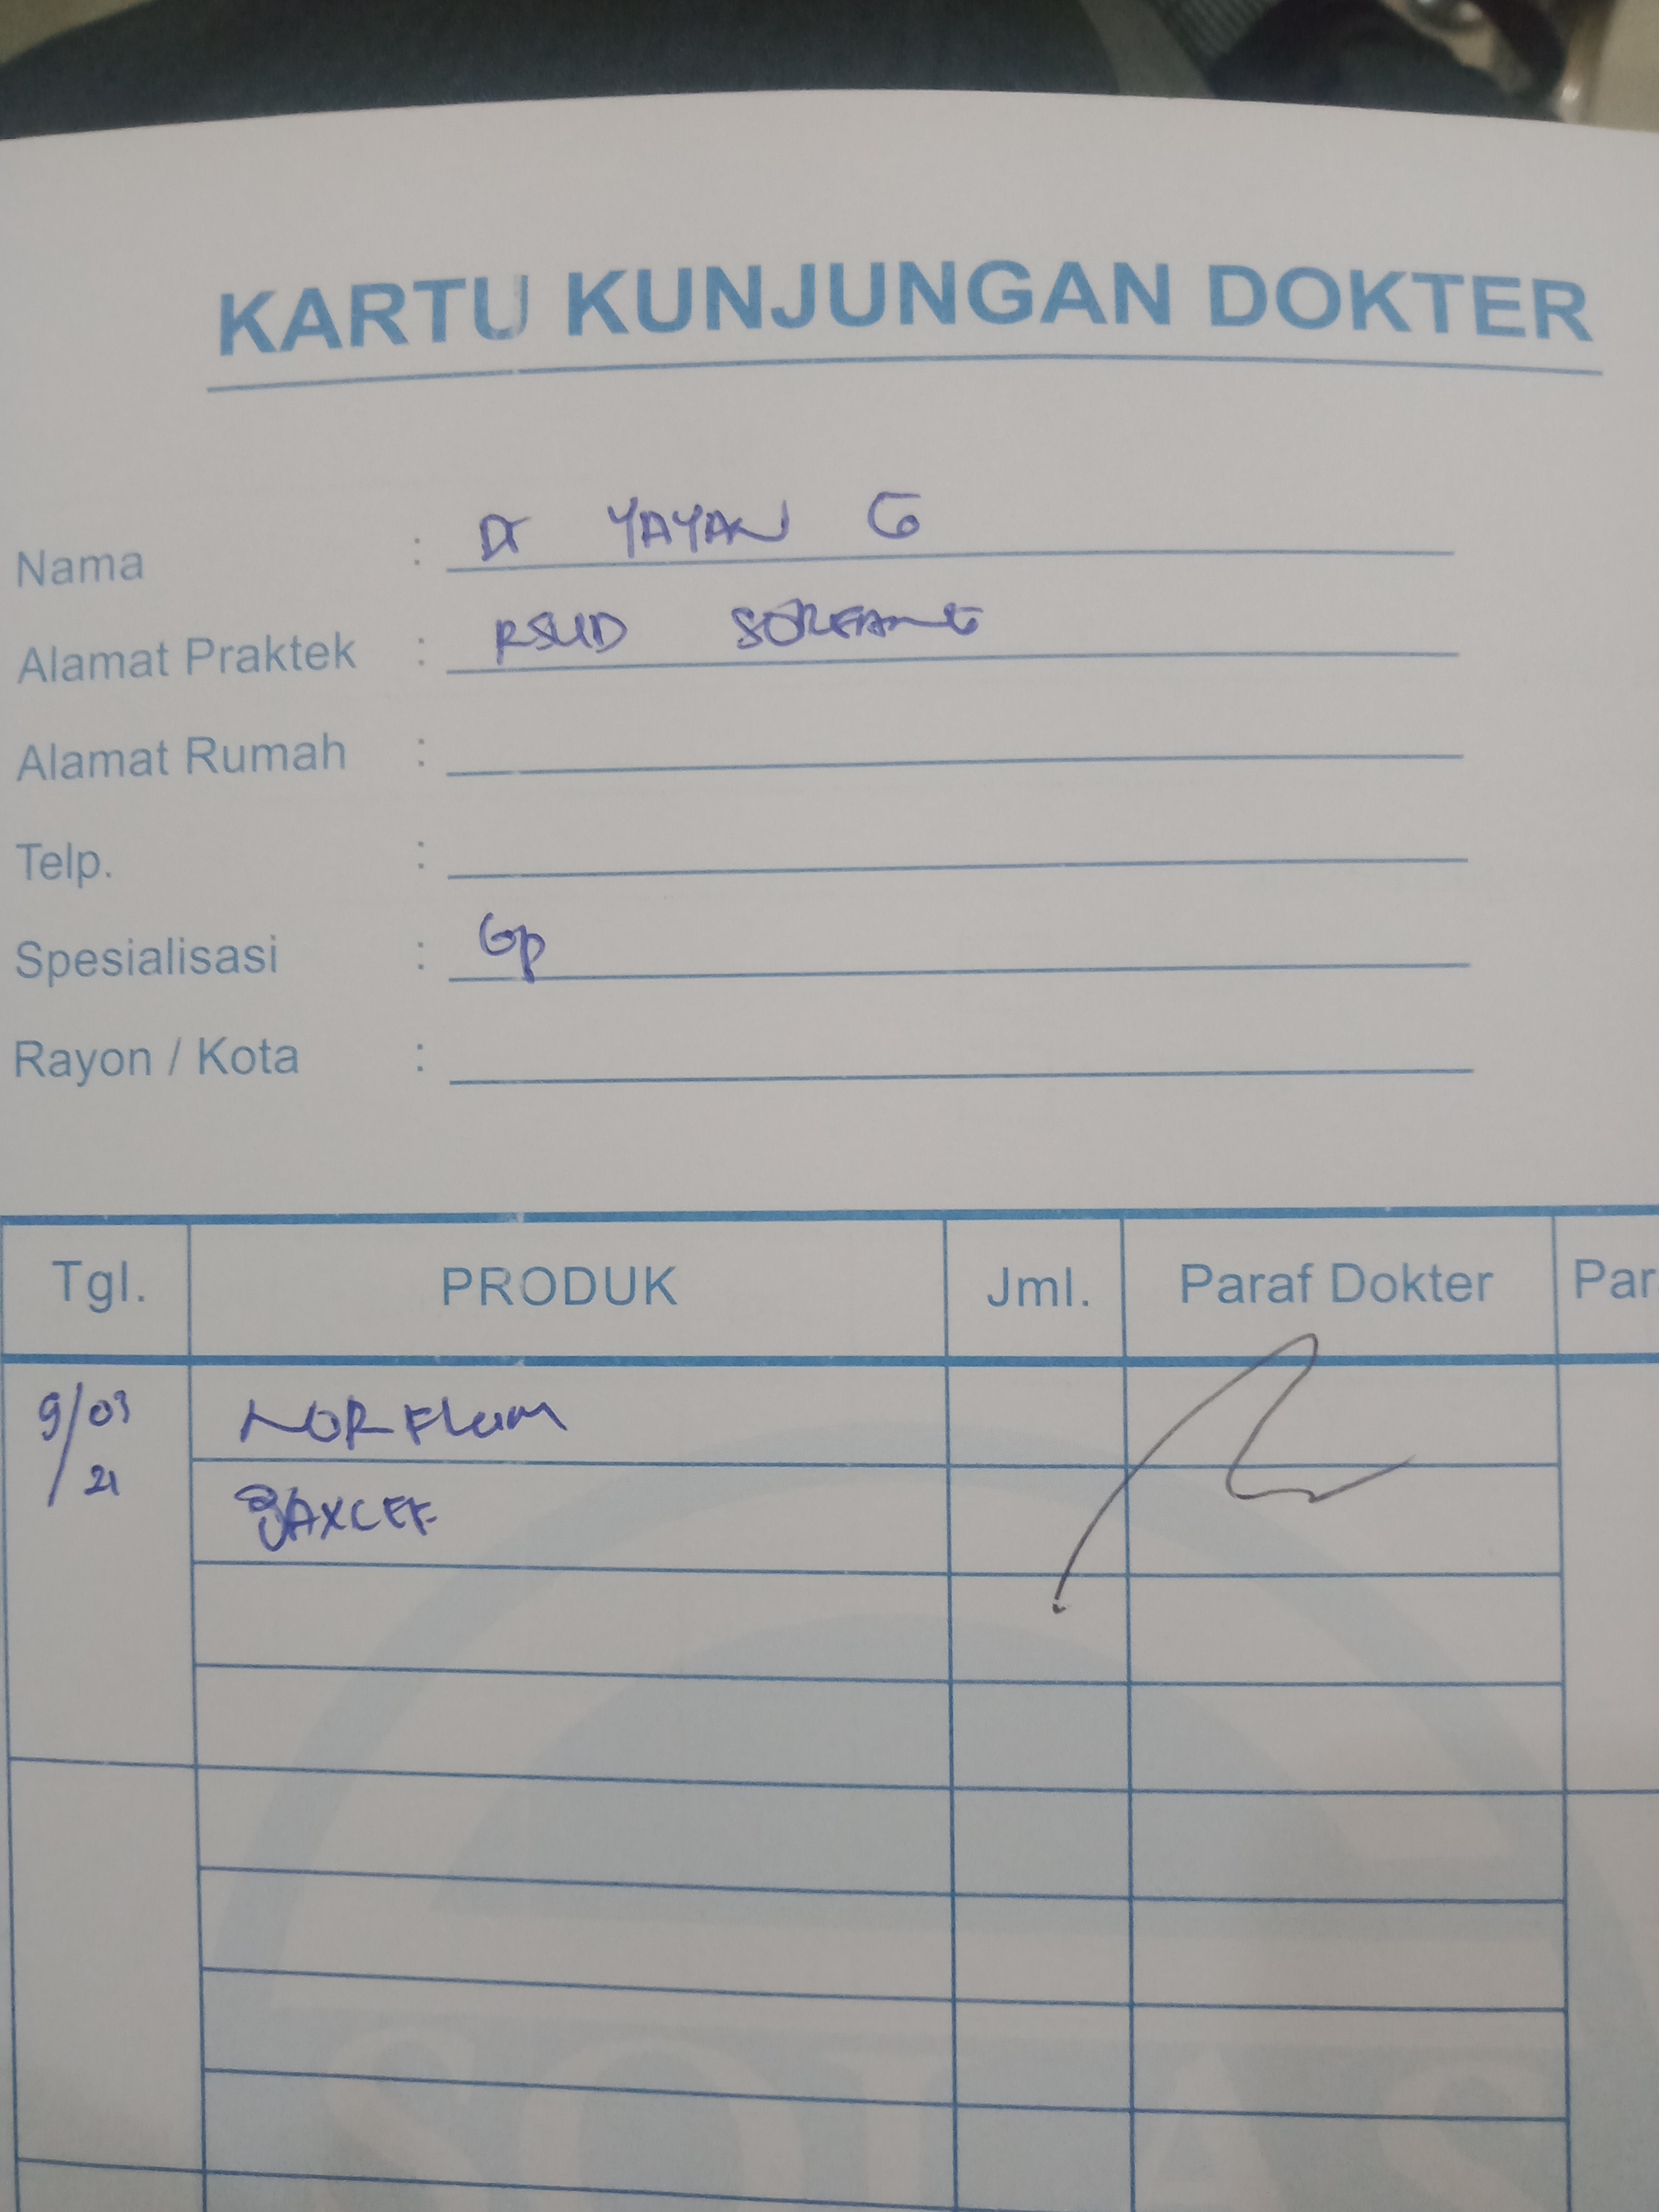 KARTU KUNJUNGAN DOKTER
Nama : Dr YAYAN G
Alamat Praktek : RSUD SOREANG
Alamat Rumah :
Telp. :
Spesialisasi : Gp
Rayon / Kota :
Tgl. PRODUK Jml. Paraf Dokter Par
9/03 NORFLAM
/21 BAXCEF
SOLAS